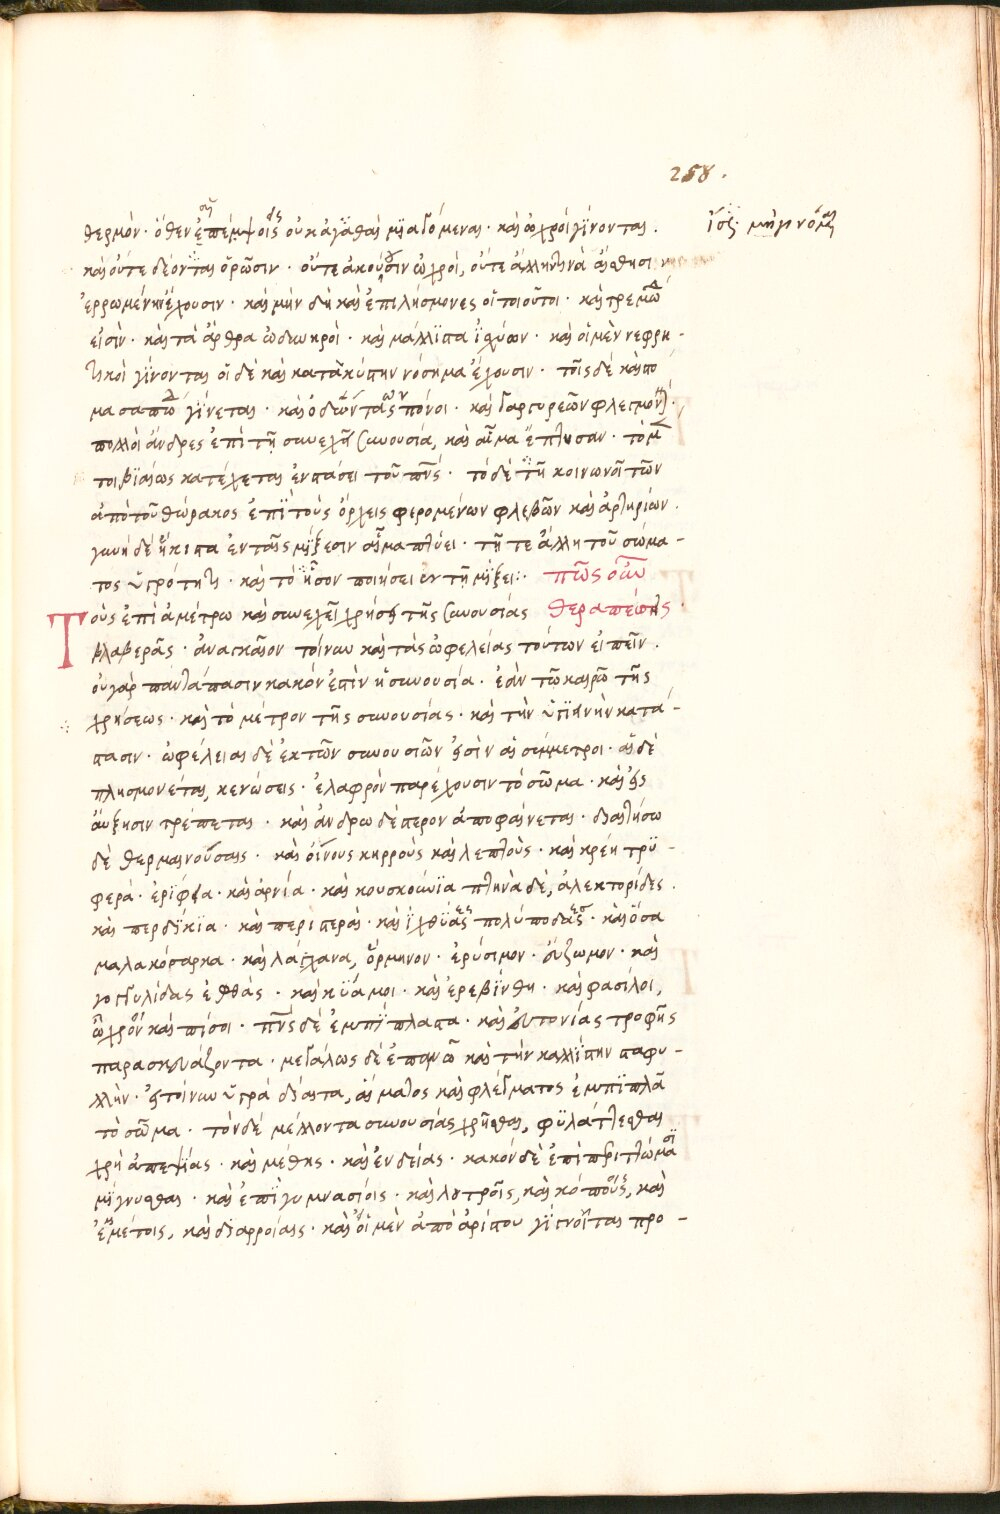 258.
θερμὸν· ὅθεν ἐπέμψοις οὐκ ἀγαθαὶ μϊαλόμεναι· καὶ ὠχροὶ γίνονται.
ἴσως μιγνόμεναι
καὶ οὔτε δέονται ὁρῶσιν· οὔτε ἀκούσιν ὠχροὶ, οὔτε ἄλλην τινὰ αἴσθησιν
ἐρρωμένην ἔχουσιν· καὶ μὴν δὴ καὶ ἐπιλήσμονες οἱ τοιοῦτοι· καὶ τρεμώδ
εἰσὶν· καὶ τὰ ἄρθρα ὀδυνηροὶ· καὶ μάλλϊστα ἰσχύων· καὶ οἱ μὲν νεφρι-
τικοὶ γίνονται οἱ δὲ καὶ κατὰ κύστην νόσημα ἔχουσιν· τοῖς δὲ καὶ στό
μα σαπῶδ γίνεται· καὶ ὀδώντας πόνοι· καὶ γαργυρεῶν φλεγμονή·
πολλοὶ ἄνδρες ἐπὶ τῇ συνεχῆ συνουσία, καὶ αἷμα ἔπτυσαν· τὸ μ
τοι βϊαίως κατέχεται ἐν στάσει τοῦ πνς· τὸ δὲ τῇ κοινωνΐα τῶν
ἀπὸ τοῦ θώρακος ἐπῒ τοὺς ὄρχεις φερομένων φλεβῶν καὶ ἀρτηρίων.
γυνὴ δὲ ἥκιστα ἐν ταῖς μΐξεσιν αἷμα πτύει· τῇ τε ἄλλη τοῦ σώμα-
τος ὑγρότητι· καὶ τὸ ἧσσον ποιήσει ἐν τῇ μΐξει:· πῶς οὖν
Τοὺς ἐπὶ ἀμέτρω καὶ συνεχεῖ χρήσει τῆς συνουσίας θεραπεύσεις·
βλαβερᾶς· ἀναγκαῖον τοίνυν καὶ τὰς ὠφελείας τούτων εἰπεῖν.
οὐ γὰρ παντάπασιν κακὸν ἐστὶν ἡ συνουσία· ἐὰν τῶ καιρῶ τῆς
χρήσεως· καὶ τὸ μέτρον τῆς συνουσίας· καὶ τὴν ὑγϊεινὴν κατά-
στασιν· ὠφέλειαι δὲ ἐκ τῶν συνουσιῶν εἰσὶν αἱ σύμμετροι· αἱ δὲ
πλησμονέται, κενώσεις· ἐλαφρὸν παρέχουσιν τὸ σῶμα· καὶ εἰς
αὔξησιν τρέπεται· καὶ ἀνδρωδέστερον ἀποφαίνεται· διαιτήσω
δὲ θερμαινούσαις· καὶ οἴνους κηρροὺς καὶ λεπτοὺς· καὶ κρέη τρϋ-
φερά· ἐρΐφεα· καὶ ἀρνία· καὶ κουσκούνϊα πτηνὰ δὲ, ἀλεκτορίδες.
καὶ περδίκϊα· καὶ περιστεραὶ· καὶ ἰχθύας πολύποδας· καὶ ὅσα
μαλακόσαρκα· καὶ λάχανα, ὅρμηνον· ἐρύσιμον· εὔζωμον· καὶ
γογγυλίδας ἑφθάς· καὶ κϋάμοι· καὶ ἐρεβΐνθη· καὶ φασίλοι,
ὦχρον καὶ πίσοι· πνς δὲ ἐμπϊπλαστα· καὶ εὐτονίας τροφῆς
παρασκευάζοντα· μεγάλως δὲ ἐπαινῶ καὶ τὴν καλλΐστην σταφυ-
λλὴν· ἔστι τοίνυν ὑγρὰ δίαιτα, αἵματος καὶ φλέγματος ἐμπϊπλᾶ
τὸ σῶμα· τὸν δὲ μέλλοντα συνουσίας χρῆσθαι, φϋλάττεσθαι
χρὴ ἀπεψίας· καὶ μέθης· καὶ ἐνδείας· κακὸν δὲ ἐπὶ περιττώμα
μίγνυσθαι· καὶ ἐπῒ γυμνασίοις· καὶ λουτροῖς, καὶ κόπους, καὶ
ἐμέτοις, καὶ διαρροίαις· καὶ οἱ μὲν ἀπὸ ἀρίστου γίγνοϊται προ-